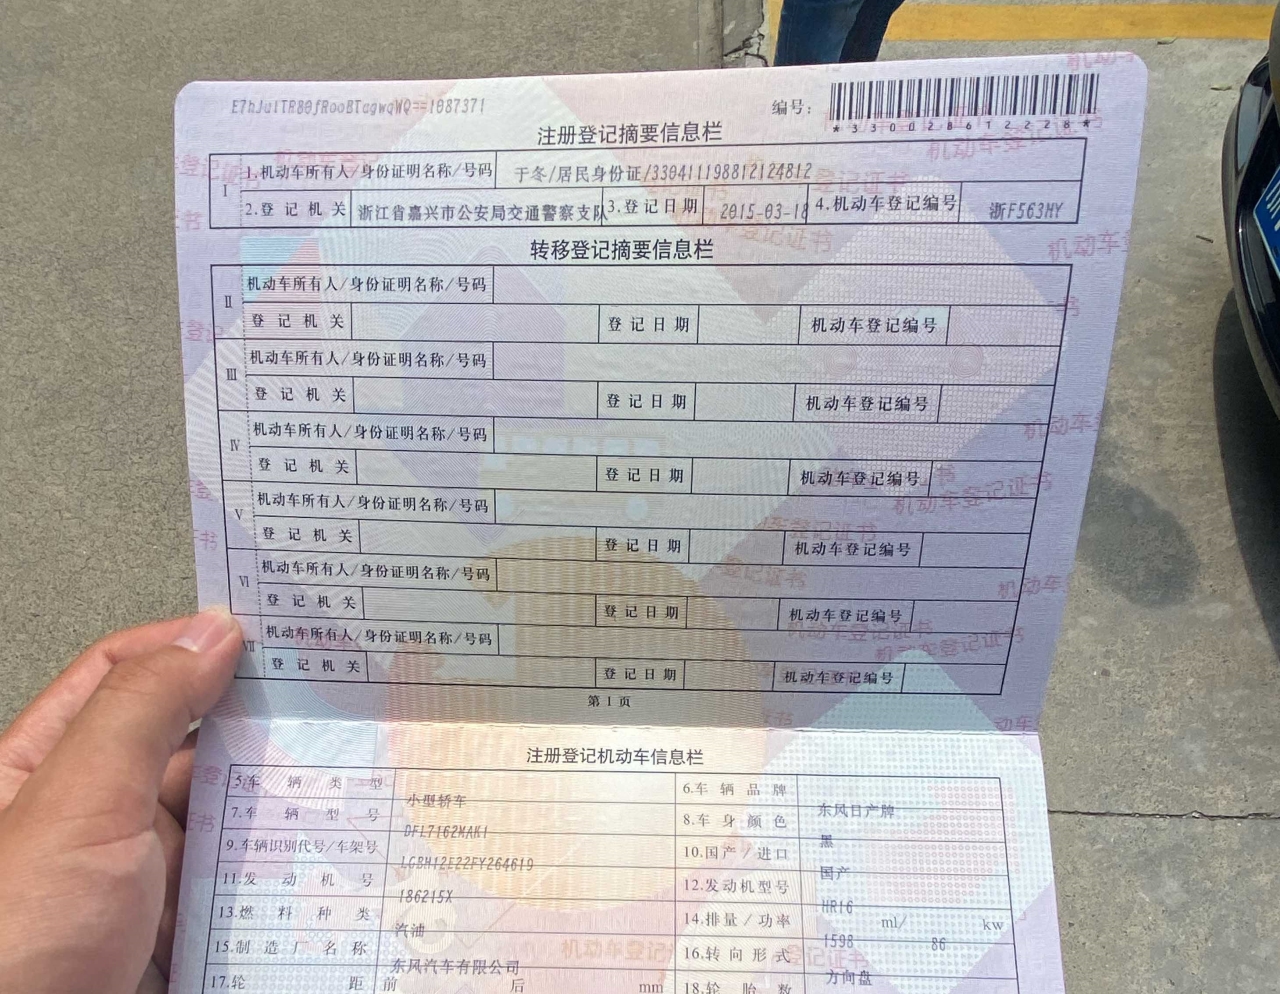 E7hJulTR80fRooBTagwqWQ==1087371 编号:
*330028612228*
注册登记摘要信息栏
I 1.机动车所有人/身份证明名称/号码 于冬/居民身份证/330411198812124812
2.登记机关 浙江省嘉兴市公安局交通警察支队 3.登记日期 2015-03-18 4.机动车登记编号 浙F563MY
转移登记摘要信息栏
II 机动车所有人/身份证明名称/号码
登记机关 登记日期 机动车登记编号
III 机动车所有人/身份证明名称/号码
登记机关 登记日期 机动车登记编号
IV 机动车所有人/身份证明名称/号码
登记机关 登记日期 机动车登记编号
V 机动车所有人/身份证明名称/号码
登记机关 登记日期 机动车登记编号
VI 机动车所有人/身份证明名称/号码
登记机关 登记日期 机动车登记编号
VII 机动车所有人/身份证明名称/号码
登记机关 登记日期 机动车登记编号
第1页
注册登记机动车信息栏
5.车辆类型 小型轿车 6.车辆品牌 东风日产牌
7.车辆型号 DFL7162MAK1 8.车身颜色 黑
9.车辆识别代号/车架号 LGBM12E22FY264619 10.国产/进口 国产
11.发动机号 186215X 12.发动机型号 HR16
13.燃料种类 汽油 14.排量/功率 1598 ml/ 86 kw
15.制造厂名称 东风汽车有限公司 16.转向形式 方向盘
17.轮距 前 后 mm 18.轮胎数